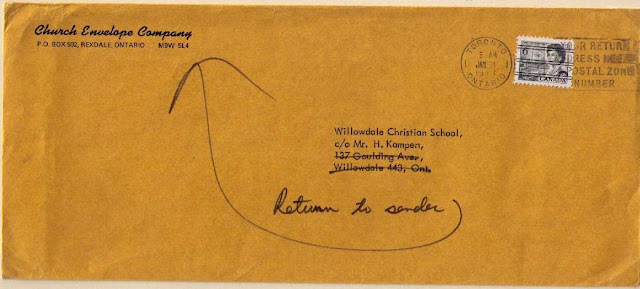 Church Envelope Company
P.O. BOX 502, REXDALE, ONTARIO M9W 5L4
TORONTO
AM
JAN
ONTARIO
YOUR RETURN
POSTAL ZONE
NUMBER
CANADA
Willowdale Christian School,
c/o Mr. H. Kampen,
137 Goulding Ave.,
Willowdale 443, Ont.
Return to sender